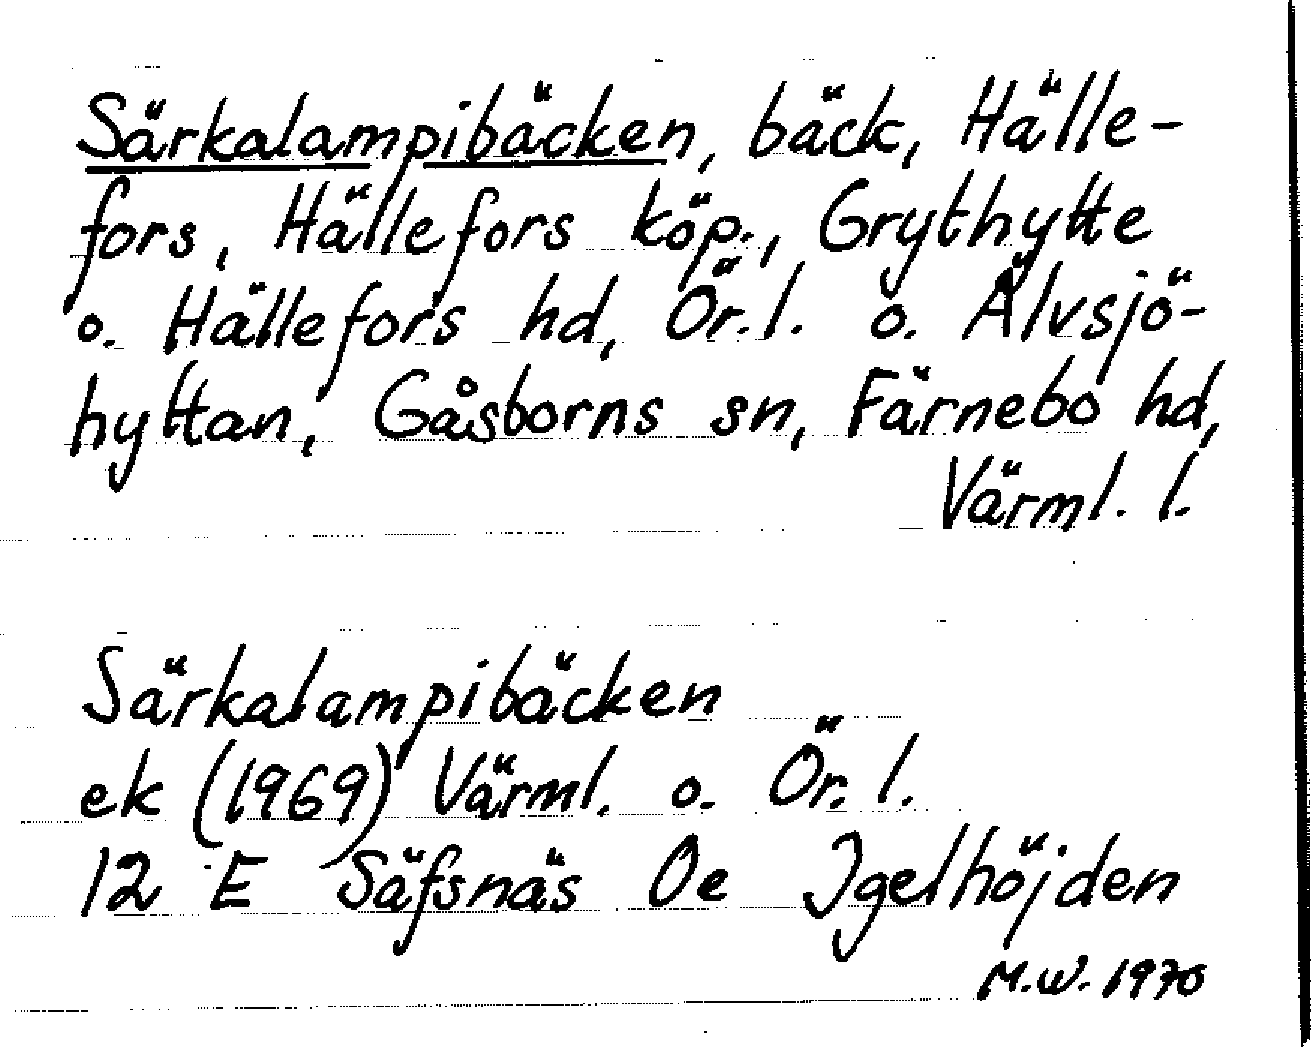 Särkalampibäcken, bäck, Hälle-
fors, Hällefors köp., Grythytte
o. Hällefors hd, Ör. l. o. Älvsjö-
hyttan, Gåsborns sn, Färnebo hd,
Värml. l.
Särkalampibäcken
ek (1969) Värml. o. Ör. l.
12 E Säfsnäs 0e Igelhöjden
M.W. 1970